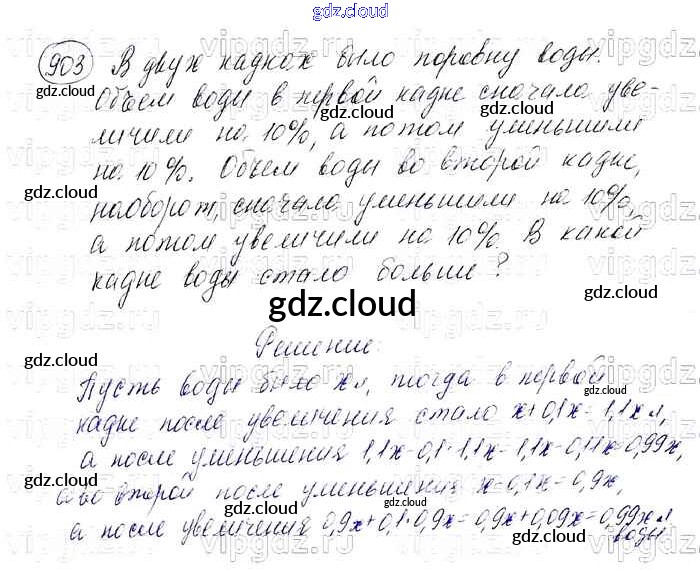 gdz.cloud
903 В двух кадках было поровну воды.
Объем воды в первой кадке сначала уве-
личили на 10%, а потом уменьшили
на 10%. Объем воды во второй кадке,
наоборот, сначала уменьшили на 10%,
а потом увеличили на 10%. В какой
кадке воды стало больше?
gdz.cloud
Решение:
Пусть воды было x л, тогда в первой
кадке после увеличения стало x+0,1x=1,1x л,
а после уменьшения 1,1x-0,1·1,1x=1,1x-0,11x=0,99x,
а во второй после уменьшения x-0,1x=0,9x,
а после увеличения 0,9x+0,1·0,9x=0,9x+0,09x=0,99x л
воды